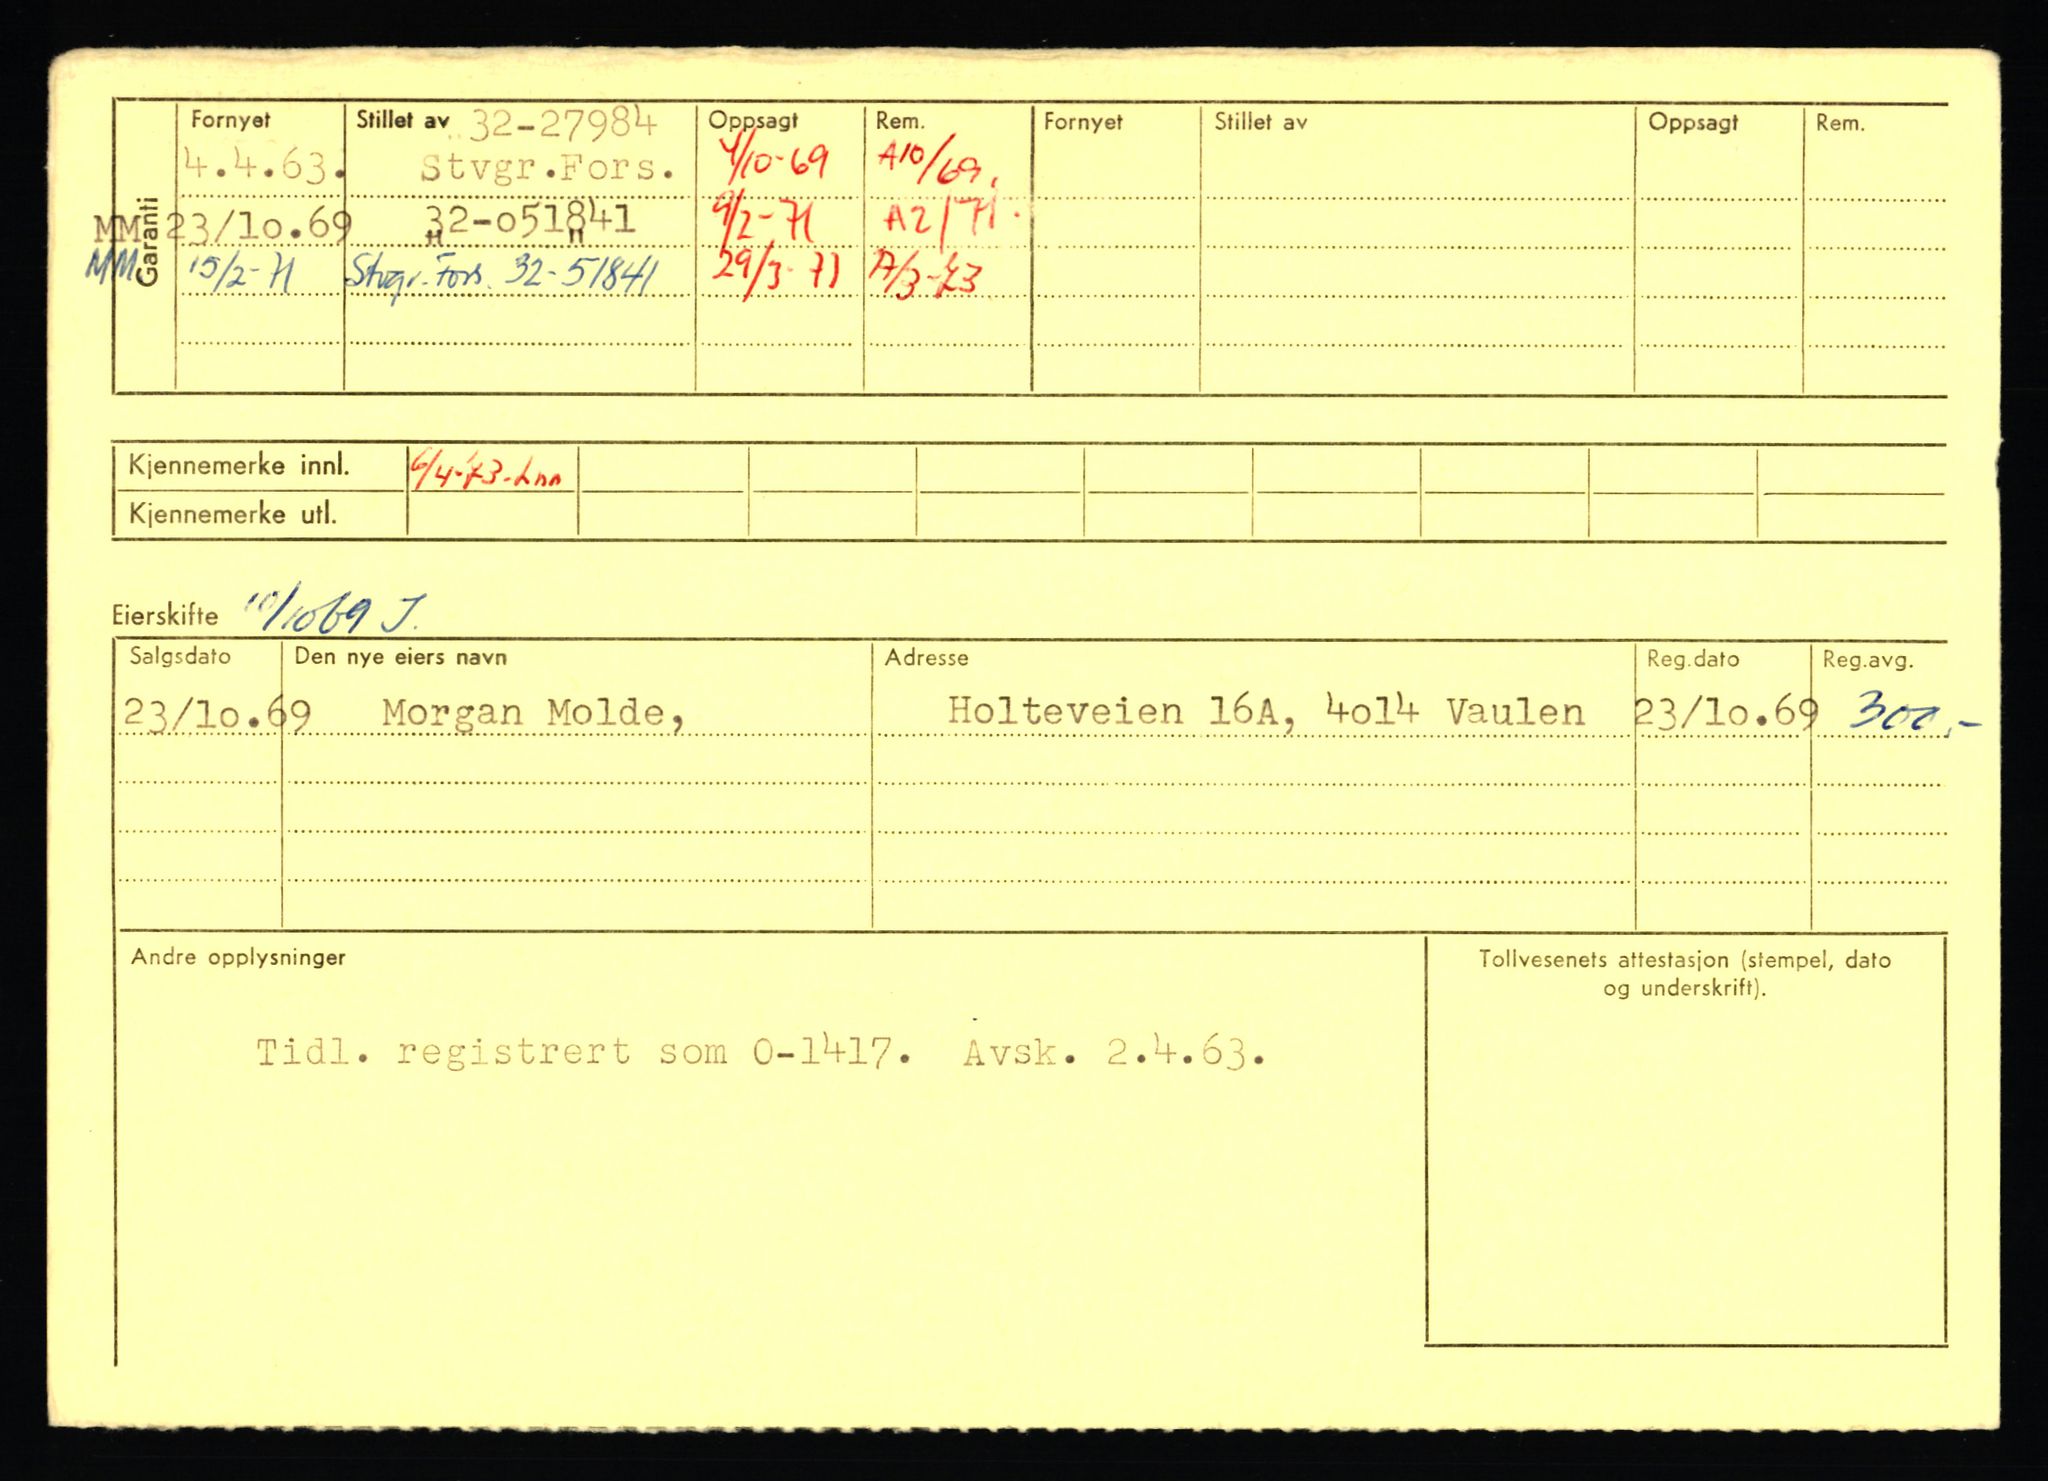 Garanti
Fornyet Stillet av 32-27984 Oppsagt Rem. Fornyet Stillet av Oppsagt Rem.
4.4.63. Stvgr.Fors. 4/10-69 A10/69.
MM 23/lo.69 32-o51841 9/2-71 A2/71.
" "
MM 15/2-71 Stvgr. Fors. 32-51841 29/3-71 A/3-73
Kjennemerke innl. 6/4-73-Lnn
Kjennemerke utl.
Eierskifte 10/1069 J.
Salgsdato Den nye eiers navn Adresse Reg.dato Reg.avg.
23/lo.69 Morgan Molde, Holteveien 16A, 4o14 Vaulen 23/lo.69 300,-
Andre opplysninger
Tollvesenets attestasjon (stempel, dato
og underskrift).
Tidl. registrert som O-1417. Avsk. 2.4.63.